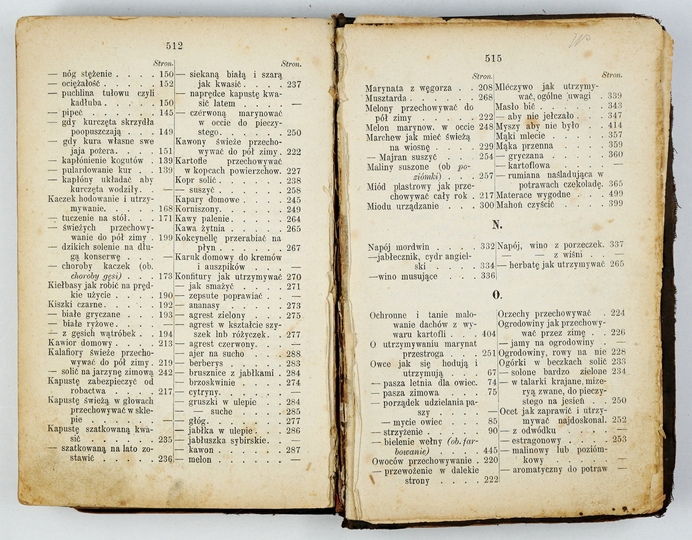 512
Stron.
— nóg stężenie . . . . 150
— ociężałość . . . . . 152
— puchlina tułowu czyli
kadłuba . . . . . 150
— pipeć . . . . . . . 145
— gdy kurczęta skrzydła
poopuszczają . . . . 149
— gdy kura własne swe
jaja pożera. . . . . 151
— kapłonienie kogutów . 139
— pulardowanie kur . . 139
— kapłony układać aby
kurczęta wodziły. . —
Kaczek hodowanie i utrzy-
mywanie. . . . . . 168
— tuczenie na stół. . . 171
— świeżych przechowy-
wanie do pół zimy . 199
— dzikich solenie na dłu-
gą konserwę . . . —
— choroby kaczek (ob.
choroby gęsi) . . . . 173
Kiełbasy jak robić na pręd-
kie użycie . . . . . 190
Kiszki czarne. . . . . . 192
— białe gryczane . . . 193
— białe ryżowe. . . . . —
— z gęsich wątróbek . . 194
Kawior domowy . . . . . 213
Kalafiory świeże przecho-
wywać do pół zimy . 219
— solić na jarzynę zimową 242
Kapustę zabezpieczyć od
robactwa . . . . . 217
Kapustę świeżą w głowach
przechowywać w skle-
pie . . . . . . . —
Kapustę szatkowaną kwa-
sić . . . . . . . 235
— szatkowaną na lato zo-
stawić . . . . . . 236
Stron.
— siekaną białą i szarą
jak kwasić . . . . . 237
— naprędce kapustę kwa-
sić latem . . . . . —
— czerwoną marynować
w occie do pieczy-
stego. . . . . . . 250
Kawony świeże przecho-
wywać do pół zimy . 222
Kartofle przechowywać
w kopcach powierzchow. 227
Kopr solić . . . . . . . 238
— suszyć . . . . . . . 258
Kapary domowe . . . . . 245
Korniszony. . . . . . . 249
Kawy palenie . . . . . . 264
Kawa żytnia . . . . . . 265
Kokcynellę przerabiać na
płyn . . . . . . . 267
Karuk domowy do kremów
i auszpików . . . . —
Konfitury jak utrzymywać 270
— jak smażyć . . . . . 271
— zepsute poprawiać . . —
— ananasy . . . . . . 273
— agrest zielony . . . . 275
— agrest w kształcie szy-
szek lub różyczek. . . 277
— agrest czerwony. . . . —
— ajer na sucho . . . . 288
— berberys . . . . . . 283
— brusznice z jabłkami . 284
— brzoskwinie . . . . . 274
— cytryny. . . . . . . —
— gruszki w ulepie . . . 284
— — suche . . . . . 285
— głóg. . . . . . . . 277
— jabłka w ulepie . . . . 286
— jabłuszka sybirskie. . . —
— kawon . . . . . . . 287
— melon . . . . . . . —
515
Stron.
Marynata z węgorza . . 208
Musztarda. . . . . . . 268
Melony przechowywać do
pół zimy . . . . . 222
Melon marynow. w occie 248
Marchew jak mieć świeżą
na wiosnę . . . . . 229
— Majran suszyć . . . . 254
Maliny suszone (ob po-
ziómki) . . . . . . 257
Miód plastrowy jak prze-
chowywać cały rok . 217
Miodu urządzanie . . . . 300
Stron.
Mléczywo jak utrzymy-
wać, ogólne uwagi . . 339
Masło bić . . . . . . . 343
— aby nie jełczało . . . 347
Myszy aby nie było . . . 414
Mąki mlecie . . . . . . 357
Mąka przenna . . . . . 359
— gryczana . . . . . . 360
— kartoflowa . . . . . —
— rumiana naśladująca w
potrawach czekoladę. 365
Materace wygodne . . . 499
Mahoń czyścić . . . . . 399
N.
Napój mordwin . . . . . 332
—jabłecznik, cydr angiel-
ski . . . . . . . 334
—wino musujące . . . . 336
Napój, wino z porzeczek. 337
— — z wiśni . . —
— herbatę jak utrzymywać 265
O.
Ochronne i tanie malo-
wanie dachów z wy-
waru kartofli . . . . 404
O utrzymywaniu marynat
przestroga . . . . . 251
Owce jak się hodują i
utrzymują . . . . . 67
— pasza letnia dla owiec. 74
— pasza zimowa . . . . 75
— porządek udzielania pa-
szy . . . . . . . —
— mycie owiec . . . . 85
— strzyżenie . . . . . 90
— bielenie wełny (ob. far-
bowanie) . . . . . 445
Owoców przechowywanie . 220
— przewożenie w dalekie
strony . . . . . . 222
Orzechy przechowywać . . 224
Ogrodowiny jak przechowy-
wać przez zimę . . . 226
— jamy na ogrodowiny . . —
Ogrodowiny, rowy na nie 228
Ogórki w beczkach solić 233
— solone bardzo zielone 234
— w talarki krajane, mize-
ryą zwane, do pieczy-
stego na jesień . . . 250
Ocet jak zaprawić i utrzy-
mywać najdoskonal. 252
— z odwódku . . . . . —
— estragonowy . . . . 253
— malinowy lub poziom-
kowy . . . . . . —
— aromatyczny do potraw —